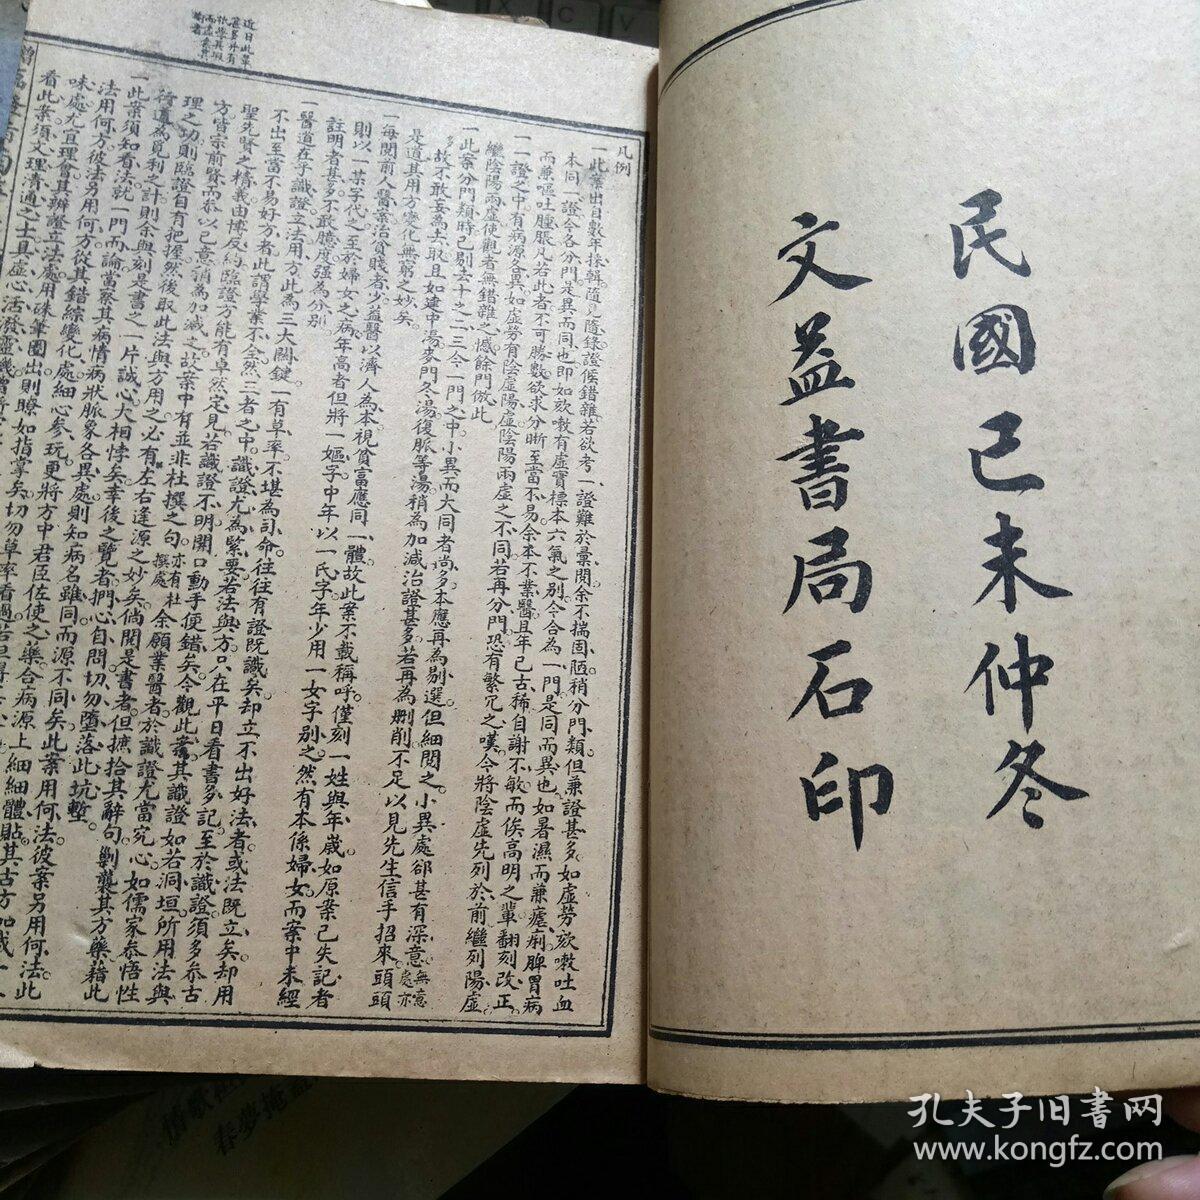 民國己未仲冬
文益書局石印
凡例
一此案出自數年採輯隨見隨錄證候錯雜若欲考一證難於彙閱余不揣固陋稍分門類但兼證甚多如虛勞欬嗽吐血
本同一證今各分門是異而同也即如欬嗽有虛實標本六氣之別今合為一門是同而異也如暑濕而兼瘧痢脾胃病
而兼嘔吐腫脹凡若此者不可勝數欲求分晰至當不易余本不業醫且年已古稀自謝不敏而俟高明之輩翻刻改正
一一證之中有病源各異如虛勞有陰虛陽虛陰陽兩虛之不同若再分門恐有繁冗之嘆今將陰虛先列於前繼列陽虛
繼陰陽兩虛使觀者無錯雜之憾餘門倣此
一此案分門類時已剔去十之二三今一門之中小異而大同者尚多本應再為剔選但細閱之小異處卻甚有深意無意處亦
多故不敢妄為去取且如建中湯麥門冬湯復脈等湯稍為加減治證甚多若再為刪削不足以見先生信手招來頭頭
是道其用方變化無窮之妙矣
一每閱前人醫案治貧賤者少益醫以濟人為本視貧富應同一體故此案不載稱呼僅刻一姓與年歲如原案已失記者
則以一某字代之至於婦女之病年高者但將一嫗字中年以一氏字年少用一女字別之然有本係婦女而案中未經
註明者甚多不敢臆度強為分別
一醫道在乎識證立法用方此為三大關鍵一有草率不堪為司命往往有證既識矣卻立不出好法者或法既立矣却用
不出至當不易好方者此謂學業不全然三者之中識證尤為緊要若法與方只在平日看書多記至於識證須多參古
聖先賢之精義由博反約臨證方能有卓然定見若識證不明開口動手便錯矣今觀此案其識證如若洞垣所用法與
方皆宗前賢而參以己意稍為加減之故案中有並非杜撰之句亦有杜撰處余願業醫者於識證尤當究心如儒家參悟性
理之功則臨證自有把握然後取此法與方用之必有左右逢源之妙矣倘閱是書者但摭拾其辭句剿襲其方藥藉此
行道為覓利之計則余與刻是書之一片誠心大相悖矣幸後之覽者捫心自問切勿墮落此坑塹
一此案須知看法就一門而論當聚其病情病狀脈象各異處則知病名雖同而源不同矣此案用何法彼案另用何法此
法用何方彼法另用何方從其錯綜變化處細心參玩更將方中君臣佐使之藥合病源上細細體貼其古方加減一
味處尤宜理會其辨證立法處用硃筆圈出則瞭如指掌矣切勿草率看過若但得
看此案須文理清通之士具虛心活潑靈機
近日此草
甚多并有
孔夫子旧书网
www.kongfz.com